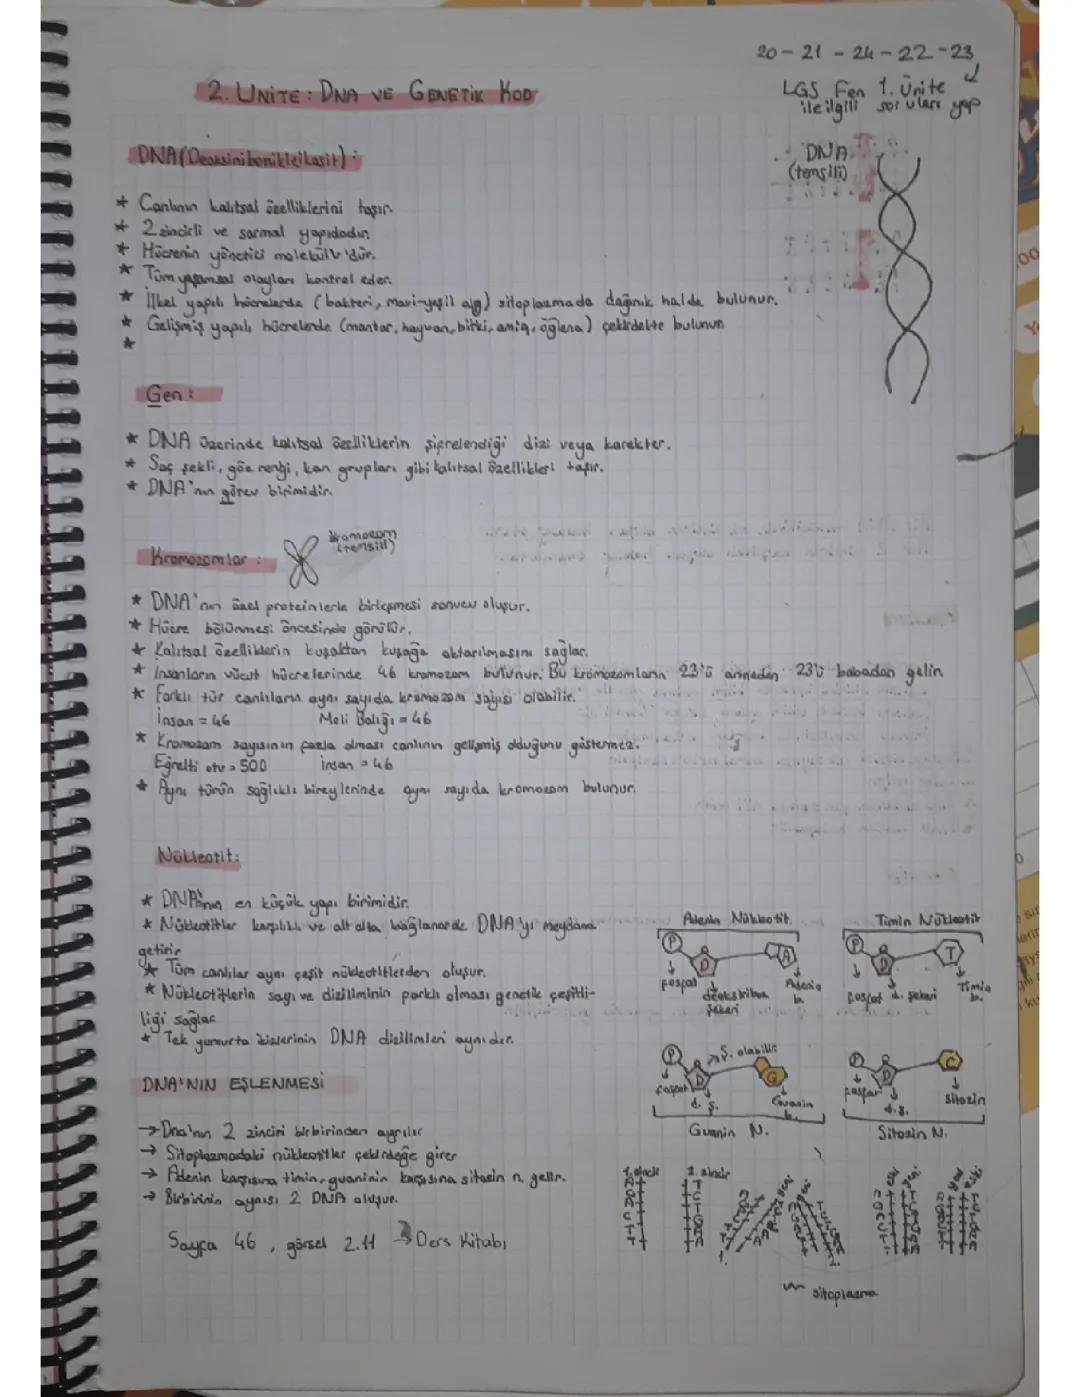 20 - 21 - 24 - 22 - 23
LGS Fen 1. Ünite
ile ilgili soruları yap
2. ÜNİTE : DNA VE GENETİK KOD
DNA (Deoksiribonikleikasit) :
DNA
(temsili)
* Canlının kalıtsal özelliklerini taşır.
* 2 zincirli ve sarmal yapıdadır.
* Hücrenin yönetici molekülü'dür.
* Tüm yaşamsal olayları kontrol eder.
* İlkel yapılı hücrelerde (bakteri, mavi-yeşil alg) sitoplazmada dağınık halde bulunur.
* Gelişmiş yapılı hücrelerde (mantar, hayvan, bitki, amip, öglena) çekirdekte bulunur.
*
Gen :
* DNA üzerinde kalıtsal özelliklerin şifrelendiği dizi veya karekter.
* Saç şekli, göz rengi, kan grupları gibi kalıtsal özellikleri taşır.
* DNA'nın görev birimidir.
Kromozomlar :
Kromozom
(temsili)
* DNA'nın özel proteinlerle birleşmesi sonucu oluşur.
* Hücre bölünmesi öncesinde görülür.
* Kalıtsal özelliklerin kuşaktan kuşağa aktarılmasını sağlar.
* İnsanların vücut hücrelerinde 46 kromozom bulunur. Bu kromozomların 23'ü anneden 23'ü babadan gelir.
* Farklı tür canlıların aynı sayıda kromozom sayısı olabilir.
İnsan = 46 Moli Balığı = 46
* Kromozom sayısının fazla olması canlının gelişmiş olduğunu göstermez.
Eğrelti otu = 500 İnsan = 46
* Aynı türün sağlıklı bireylerinde aynı sayıda kromozom bulunur.
Nükleotit:
* DNA'nın en küçük yapı birimidir.
* Nükleotitler karşılıklı ve alt alta bağlanarak DNA'yı meydana
getirir
* Tüm canlılar aynı çeşit nükleotitlerden oluşur.
* Nükleotitlerin sayı ve diziliminin farklı olması genetik çeşitli-
liği sağlar
* Tek yumurta ikizlerinin DNA dizilimleri aynıdır.
Adenin Nükleotit
P D A
fosfat deoksiriboz şekeri Adenin b.
Timin Nükleotit
P D T
fosfat d. şekeri Timin b.
P D G
Ş. olabilir
fosfat d. ş. Guanin b.
Guanin N.
P D C
fosfat d.ş. sitozin
Sitozin N.
DNA'NIN EŞLENMESİ
→ Dna'nın 2 zinciri birbirinden ayrılır
→ Sitoplazmadaki nükleotitler çekirdeğe girer
→ Adenin karşısına timin, guaninin karşısına sitozin n. gelir.
→ Birbirinin aynısı 2 DNA oluşur.
Sayfa 46, görsel 2.11 → Ders Kitabı
1. zincir 2. zincir
sitoplazma